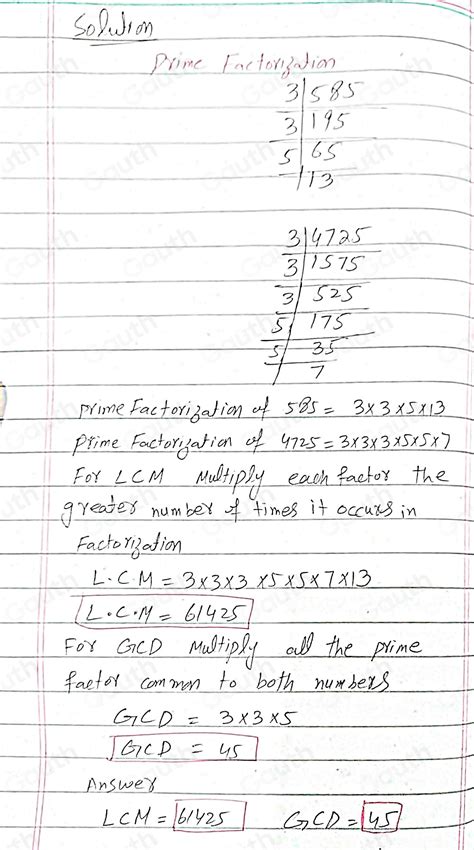 Solution
Prime Factorization
3|585
3|195
5|65
|13
3|4725
3|1575
3|525
5|175
5|35
7
prime Factorization of 585 = 3×3×5×13
prime Factorization of 4725 = 3×3×3×5×5×7
For LCM Multiply each factor the
greater number of times it occurs in
Factorization
L.C.M = 3×3×3×5×5×7×13
L.C.M = 61425
For GCD Multiply all the prime
factor common to both numbers
GCD = 3×3×5
GCD = 45
Answer
LCM = 61425 GCD = 45